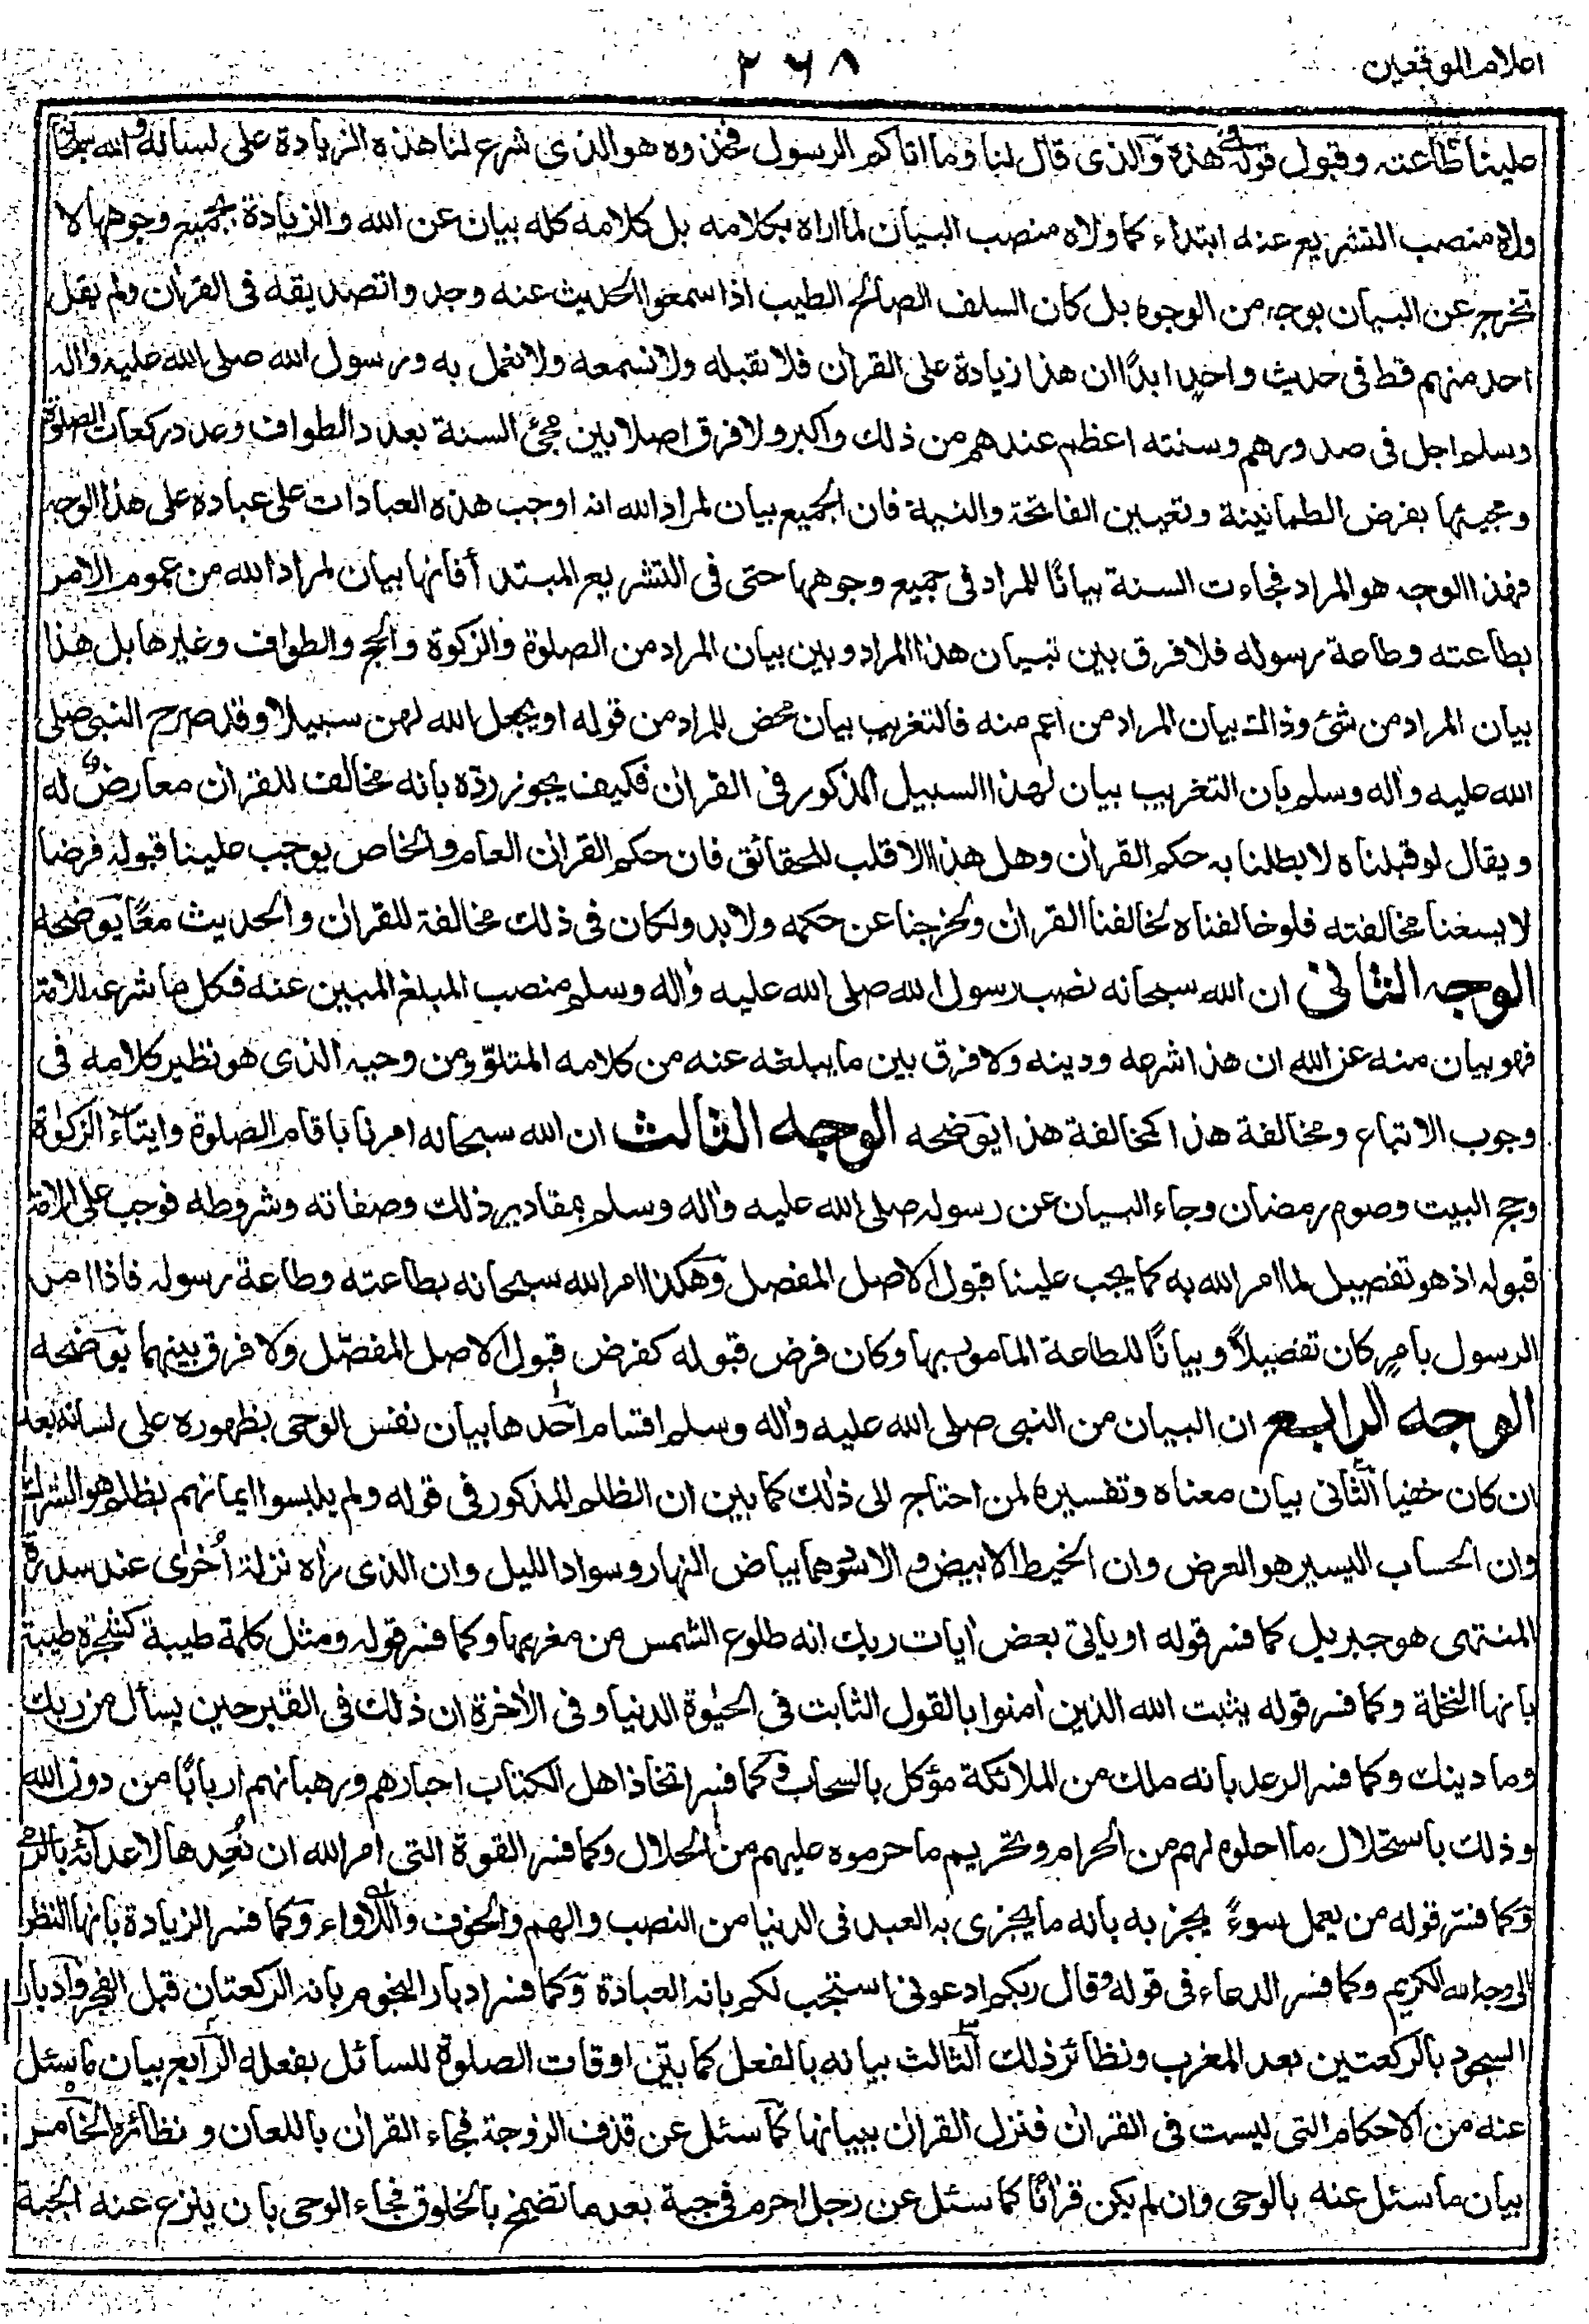 اعلام الموقعين
٢٦٨
علينا طاعته وقبول قوله في هذه والذي قال لنا وما اتاكم الرسول فخذوه هو الذي شرع لنا هذه الزيادة على لسانه والله سبحانه
ولاه منصب التشريع عنه ابتداء كما ولاه منصب البيان لما اراه بكلامه بل كلامه كله بيان عن الله والزيادة بجميع وجوهها لا
تخرج عن البيان بوجه من الوجوه بل كان السلف الصالح الطيب اذا سمعوا الحديث عنه وجدوا تصديقه في القرأن ولم يقل
احد منهم قط في حديث واحدٍ ابدًا ان هذا زيادة على القرأن فلا نقبله ولا نسمعه ولا نعمل به ورسول الله صلى الله عليه واله
وسلم اجل في صدورهم وسنته اعظم عندهم من ذلك واكبر ولا فرق اصلا بين مجئ السنة بعدد الطواف وعدد ركعات الصلوة
ومجيئها بفرض الطمانينة وتعيين الفاتحة والنية فان الجميع بيان لمراد الله انه اوجب هذه العبادات على عباده على هذا الوجه
فهذا الوجه هو المراد فجاءت السنة بيانًا للمراد في جميع وجوهها حتى في التشريع المبتدأ فانها بيان لمراد الله من عموم الامر
بطاعته وطاعة رسوله فلا فرق بين تبيان هذا المراد وبين بيان المراد من الصلوة والزكوة والحج والطواف وغيرها بل هذا
بيان المراد من شئ وذاك بيان المراد من اعم منه فالتغريب بيان محض للمراد من قوله او يجعل الله لهن سبيلا وقد صرح النبي صلى
الله عليه وأله وسلم بان التغريب بيان لهذا السبيل المذكور في القرأن فكيف يجوز ردّه بانه مخالف للقرأن معارض له
ويقال لو قبلناه لابطلنا به حكم القرأن وهل هذا الا قلب للحقائق فان حكم القرأن العام والخاص يوجب علينا قبوله فرضا
لا يسعنا مخالفته فلو خالفناه لخالفنا القرأن ولخرجنا عن حكمه ولا بد ولكان في ذلك مخالفة للقرأن والحديث معًا يوضحه
الوجه الثاني ان الله سبحانه نصب رسول الله صلى الله عليه وأله وسلم منصب المبلغ المبين عنه فكل ما شرعه للامة
فهو بيان منه عن الله ان هذا شرعه ودينه ولا فرق بين ما يبلغه عنه من كلامه المتلوّ ومن وحيه الذي هو نظير كلامه في
وجوب الاتباع ومخالفة هذا كمخالفة هذا يوضحه الوجه الثالث ان الله سبحانه امرنا باقام الصلوة وايتاء الزكوة
وحج البيت وصوم رمضان وجاء البيان عن رسوله صلى الله عليه وأله وسلم بمقادير ذلك وصفاته وشروطه فوجب على الامة
قبوله اذ هو تفصيل لما امر الله به كما يجب علينا قبول الاصل المفصل وهكذا امر الله سبحانه بطاعته وطاعة رسوله فاذا امر
الرسول بامرٍ كان تفصيلاً وبيانًا للطاعة المامور بها وكان فرض قبوله كفرض قبول الاصل المفصّل ولا فرق بينهما يوضحه
الوجه الرابع ان البيان من النبي صلى الله عليه وأله وسلم اقسام احدها بيان نفس الوحي بظهوره على لسانه بعد
ان كان خفيا الثاني بيان معناه وتفسيره لمن احتاج الى ذلك كما بين ان الظلم المذكور في قوله ولم يلبسوا ايمانهم بظلم هو الشرك
وان الحساب اليسير هو العرض وان الخيط الابيض والاسود هما بياض النهار وسواد الليل وان الذي رأه نزلة أخرى عند سدرة
المنتهى هو جبريل كما فسر قوله او ياتي بعض أيات ربك انه طلوع الشمس من مغربها وكما فسر قوله ومثل كلمة طيبة كشجرة طيبة
بانها النخلة وكما فسر قوله يثبت الله الذين أمنوا بالقول الثابت في الحيوة الدنيا وفي الأخرة ان ذلك في القبر حين يسأل من ربك
وما دينك وكما فسر الرعد بانه ملك من الملائكة مؤكل بالسحاب وكما فسر اتخاذ اهل الكتاب احبارهم ورهبانهم اربابًا من دون الله
وذلك باستحلال ما احلوه لهم من الحرام وتحريم ما حرموه عليهم من الحلال وكما فسر القوة التي امر الله ان نُعِدها لاعدائه بالرمي
وكما فسر قوله من يعمل سوءً يجز به بانه ما يجزى به العبد في الدنيا من النصب والهم والخوف واللاواء وكما فسر الزيادة بانها النظر
الى وجه الله الكريم وكما فسر الدعاء في قوله وقال ربكم ادعوني استجب لكم بانه العبادة وكما فسر ادبار النجوم بانه الركعتان قبل الفجر وادبار
السجود بالركعتين بعد المغرب ونظائر ذلك الثالث بيانه بالفعل كما بيّن اوقات الصلوة للسائل بفعله الرابع بيان ما سئل
عنه من الاحكام التي ليست في القرأن فنزل القرأن ببيانها كما سئل عن قذف الزوجة فجاء القرأن باللعان ونظائره الخامس
بيان ما سئل عنه بالوحي وان لم يكن قرأنًا كما سئل عن رجل احرم في جبة بعد ما تضمخ بالخلوق فجاء الوحي بان ينزع عنه الجبة